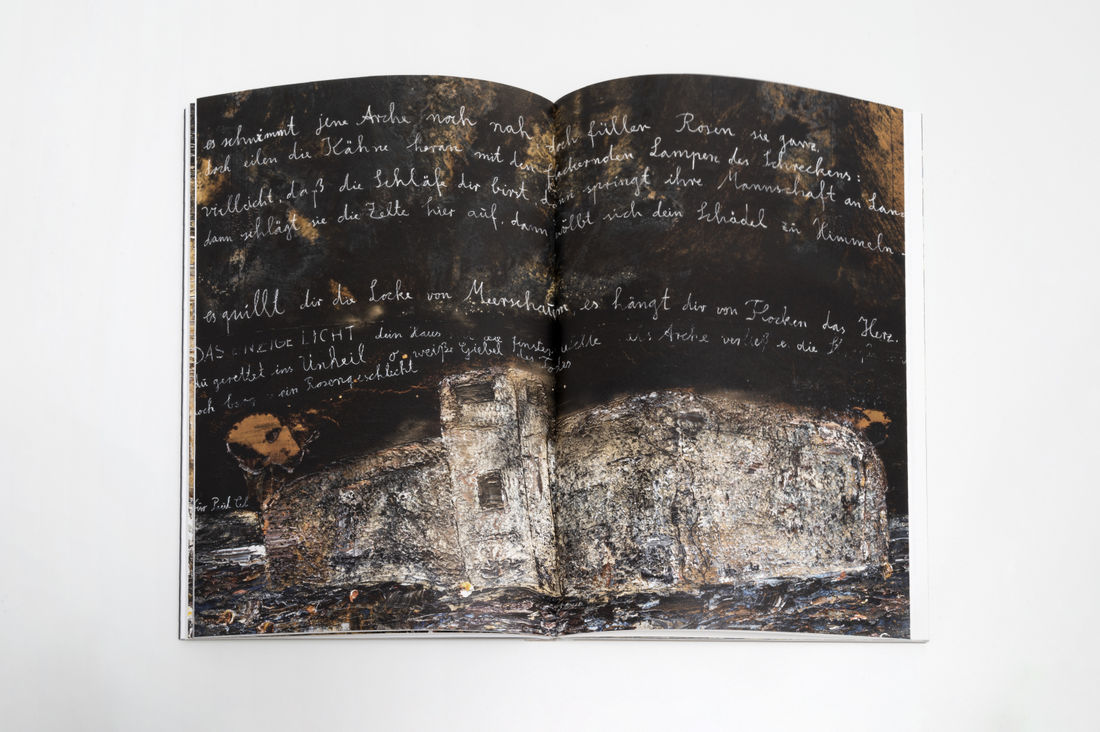 es schwimmt jene Arche noch nah, doch füllen Rosen sie ganz,
doch eilen die Kähne heran mit den flackernden Lampen des Schreckens:
vielleicht, daß die Schläfe dir birst, dann springt ihre Mannschaft an Land
dann schlägt sie die Zelte hier auf, dann wölbt sich dein Schädel zu Himmeln -
es quillt dir die Locke von Meerschaum, es hängt dir von Flocken das Herz.
DAS EINZIGE LICHT dein Haus fenster Arche verließ die
du gerettet ins Unheil o weiße Giebel des Todes
noch ein Rosengeschlecht
für Paul Cel